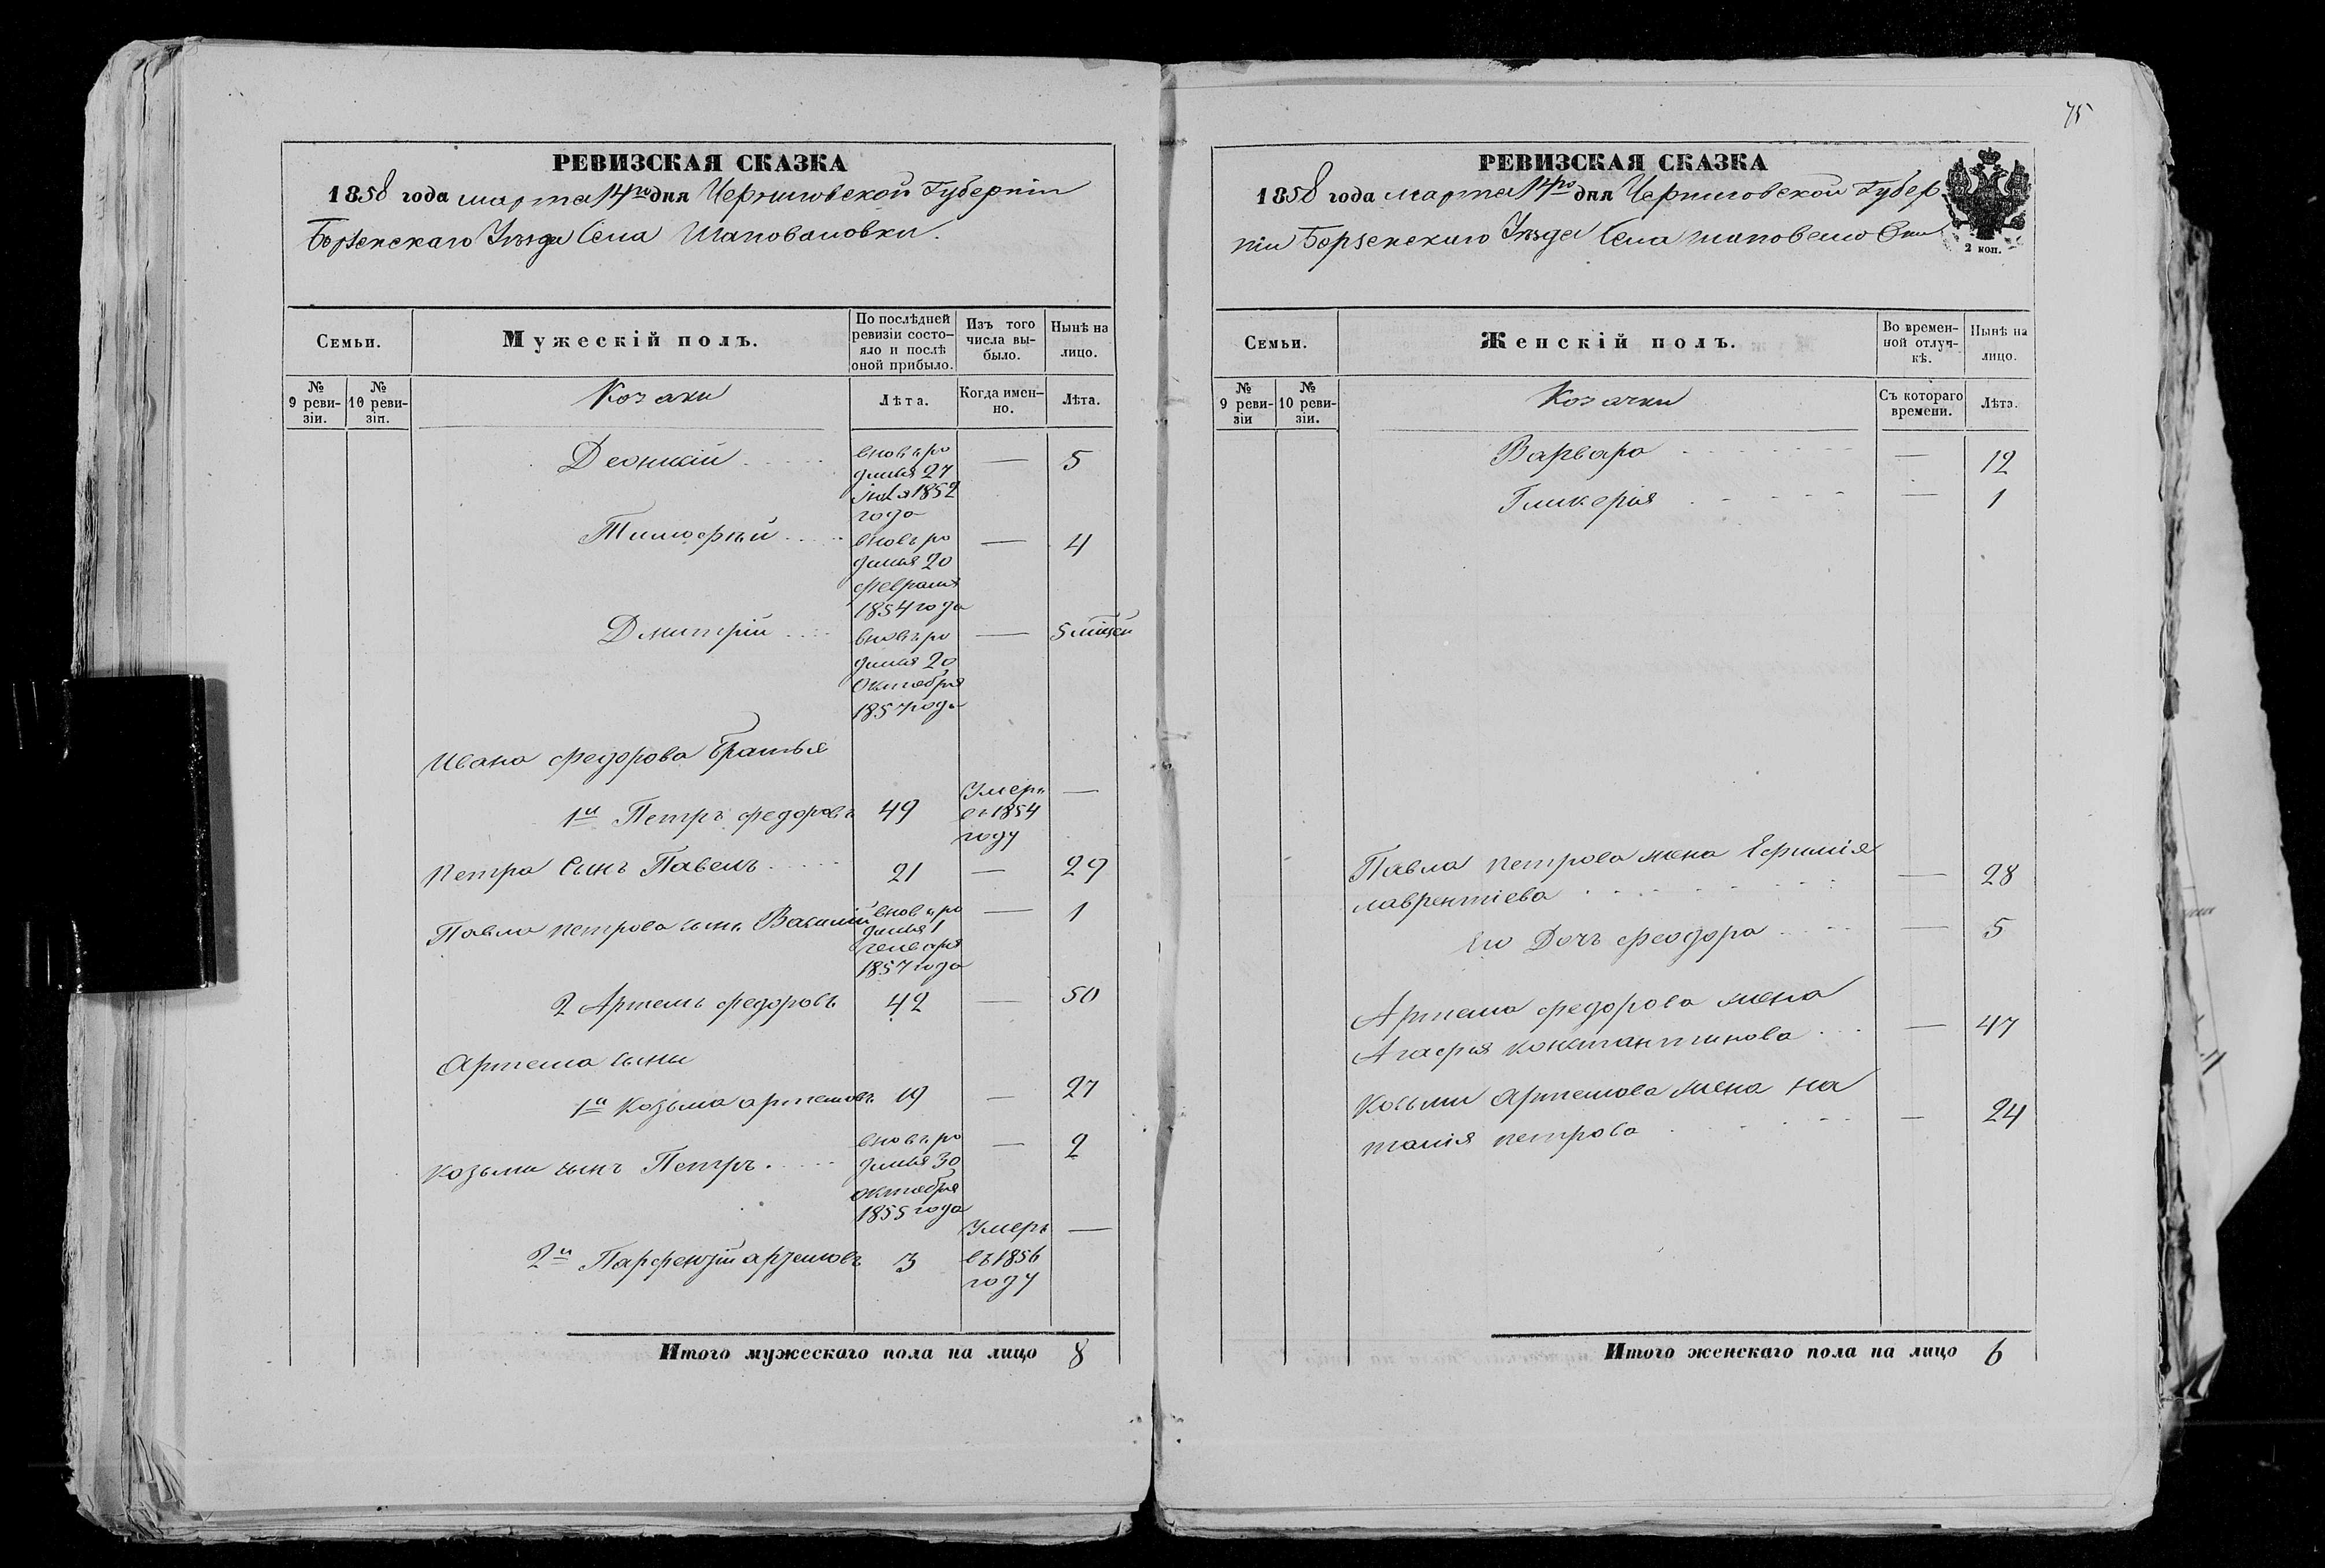 РЕВИЗСКАЯ СКАЗКА
1858 года марта 14го дня Черниговской Губерніи
Борзенскаго Уѣзда Села Шаповаловки.
Семьи.
Мужескій полъ.
По послѣдней
ревизіи состо-
яло и послѣ
оной прибыло.
Изъ того
числа вы-
было.
Нынѣ на
лицо.
№
9 реви-
зіи.
№
10 реви-
зіи.
Козаки
Лѣта.
Когда имен-
но.
Лѣта.
вновь ро
Деонисій — 5
дился 27
1852
года
Тимофѣй вновь ро — 4
дился 20
февраля
1854 года
Дмитрій вновь ро — 5 мѣсец
дился 20
Октебря
1857 года
Ивана Федорова Братья
1й Петръ Федоровъ 49 Умеръ —
въ 1854
году
Петра Сынъ Павелъ 21 — 29
Павла Петрова сынъ Василій вновь ро — 1
дился 1
генваря
1857 года
2 Артемъ Федоровъ 42 — 50
Артема сыны
1й Козьма Артемовъ 19 — 27
Козьмы сынъ Петръ. вновь ро — 2
дился 30
октебря
1855 года
2й Парфентій Артемовъ 3 Умеръ —
въ 1856
году
Итого мужескаго пола на лицо 8
75
РЕВИЗСКАЯ СКАЗКА
1858 года марта 14го дня Черниговской Губер
ніи Борзенскаго Уѣзда Села Шаповаловки
2 коп.
Семьи.
Женскій полъ.
Во времен-
ной отлуч-
кѣ.
Нынѣ на
лицо.
№
9 реви-
зіи
№
10 реви-
зіи.
Козачки
Съ котораго
времени.
Лѣта.
Варвара — 12
Гликерія — 1
Павла Петрова жена Ефимія
лаврентіева — 28
Его Дочь Феодора — 5
Артема Федорова жена
Агафія Константинова — 47
Козьмы Артемова жена на
талія Петрова — 24
Итого женскаго пола на лицо 6